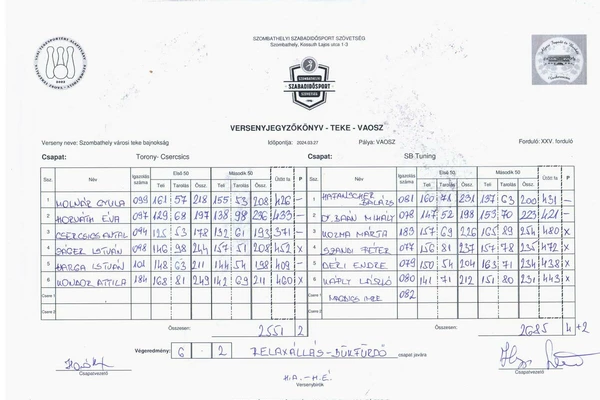 SZOMBATHELYI SZABADIDŐSPORT SZÖVETSÉG
Szombathely, Kossuth Lajos utca 1-3
SZOMBATHELYI
SZABADIDŐSPORT
SZÖVETSÉG
VERSENYJEGYZŐKÖNYV - TEKE - VAOSZ
Verseny neve: Szombathely városi teke bajnokság Időpontja: 2024.03.27 Pálya: VAOSZ Forduló: XXV. forduló
Csapat: Torony- Csercsics Csapat: SB Tuning
Ssz. Név Igazolás száma Első 50 Második 50 Ütött fa P Ssz. Név Igazolás száma Első 50 Második 50 Ütött fa P
Teli Tarolás Össz. Teli Tarolás Össz. Teli Tarolás Össz. Teli Tarolás Össz.
1 MOLNÁR GYULA 099 161 57 218 155 53 208 426 – 1 BALÁZS 081 160 71 231 137 63 200 431 –
2 HORVÁTH ÉVA 097 129 68 197 138 98 236 433 – 2 Dr. BAÁN MIHÁLY 078 147 52 198 153 70 223 421 –
3 CSERCSICS ANTAL 094 125 53 178 132 61 193 371 – 3 KOZMA MÁRTA 183 157 69 226 165 89 254 480 X
4 JÁGER ISTVÁN 098 146 98 244 157 51 208 452 X 4 PÉTER 077 156 81 237 157 78 235 472 X
5 VARGA ISTVÁN 101 148 63 211 144 54 198 409 – 5 DÉRI ENDRE 079 150 54 204 163 71 234 438 X
6 KONDOR ATTILA 184 168 81 249 142 69 211 460 X 6 LÁSZLÓ 080 141 71 212 151 80 231 443 X
Csere 1 Csere 1 082
Csere 2 Csere 2
Összesen: 2551 2 Összesen: 2685 4+2
Végeredmény: 6 - 2 RELAXÁLLÁS-BÜKFÜRDŐ csapat javára
Csapatvezető H.A. – H.É. Csapatvezető
Versenybírók